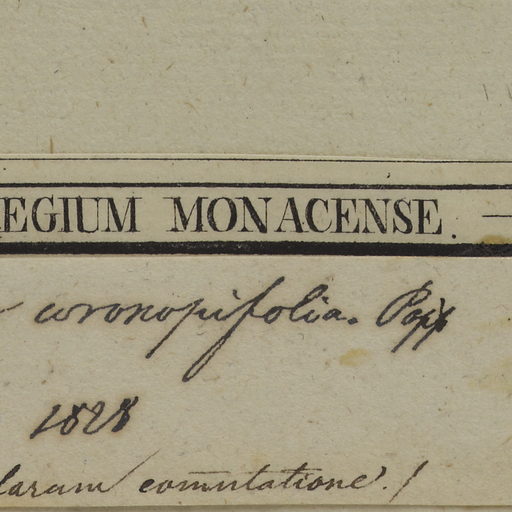 EGIUM MONACENSE.
coronopifolia. Pöpp
1828
larum com̄utatione!